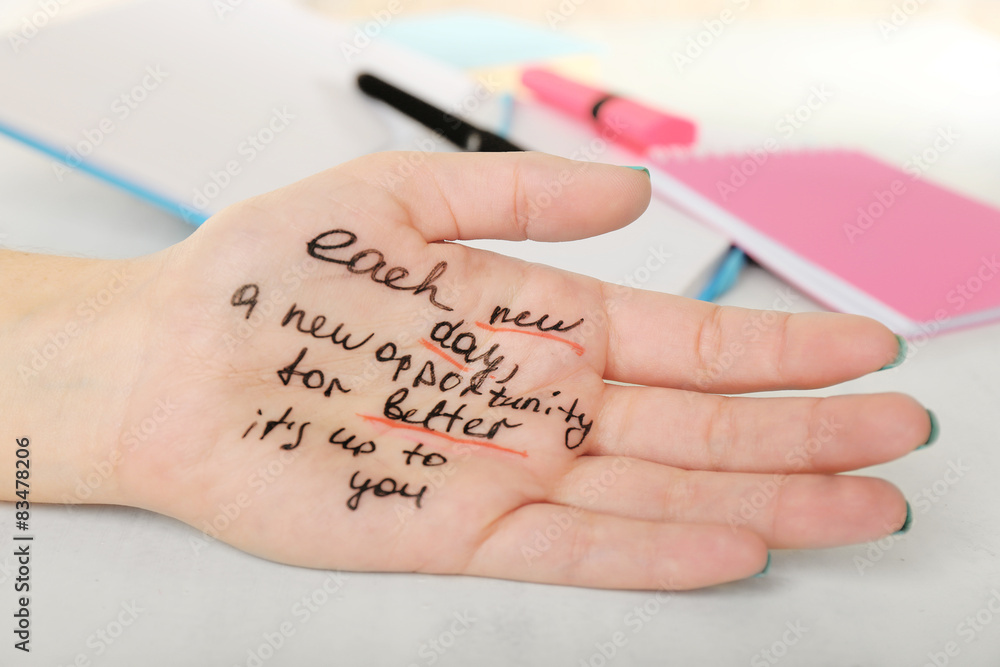 each new
day,
a new opportunity
for better
it's up to
you
Adobe Stock | #83478206